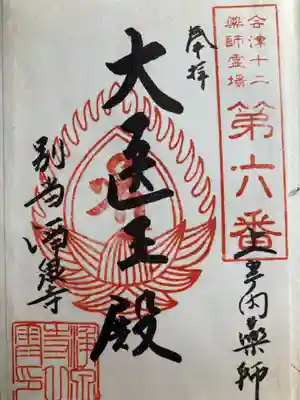 会津十二
薬師霊場
第六番
上宇内薬師
奉拝
大医王殿
別当浄泉寺